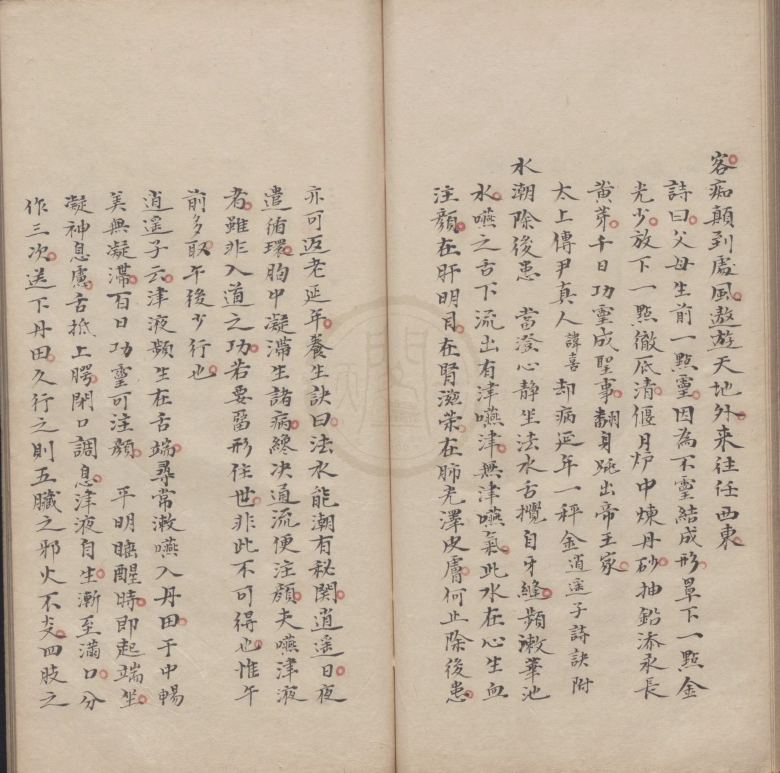 客痴顛到處風遨遊天地外來往任西東
詩曰父母生前一點靈因為不靈結成形罩下一點金
光少放下一點徹底清偃月炉中煉丹砂抽鉛添汞長
黄芽千日功靈成聖事翻身跳出帝王家
太上傳尹真人諱喜却病延年一秤金逍遥子詩訣附
水潮除後患　當澄心静坐法水舌攪自牙縫頻漱華池
水嚥之舌下流出有津嚥津無津嚥氣此水在心生血
注顔在肝明目在腎滋榮在肺光澤皮膚何止除後患
亦可返老延年養生訣曰法水能潮有秘関逍遥日夜
遣循環胸中凝滯生諸病纔决通流便注顔夫嚥津液
者雖非入道之功若要留形住世非此不可得也惟午
前多取午後少行也
逍遥子云津液頻生在舌端尋常漱嚥入丹田于中暢
美無凝滯百日功靈可注顔　平明睡醒時即起端坐
凝神息慮舌抵上腭閉口調息津液自生漸至滿口分
作三次送下丹田久行之則五臟之邪火不炎四肢之